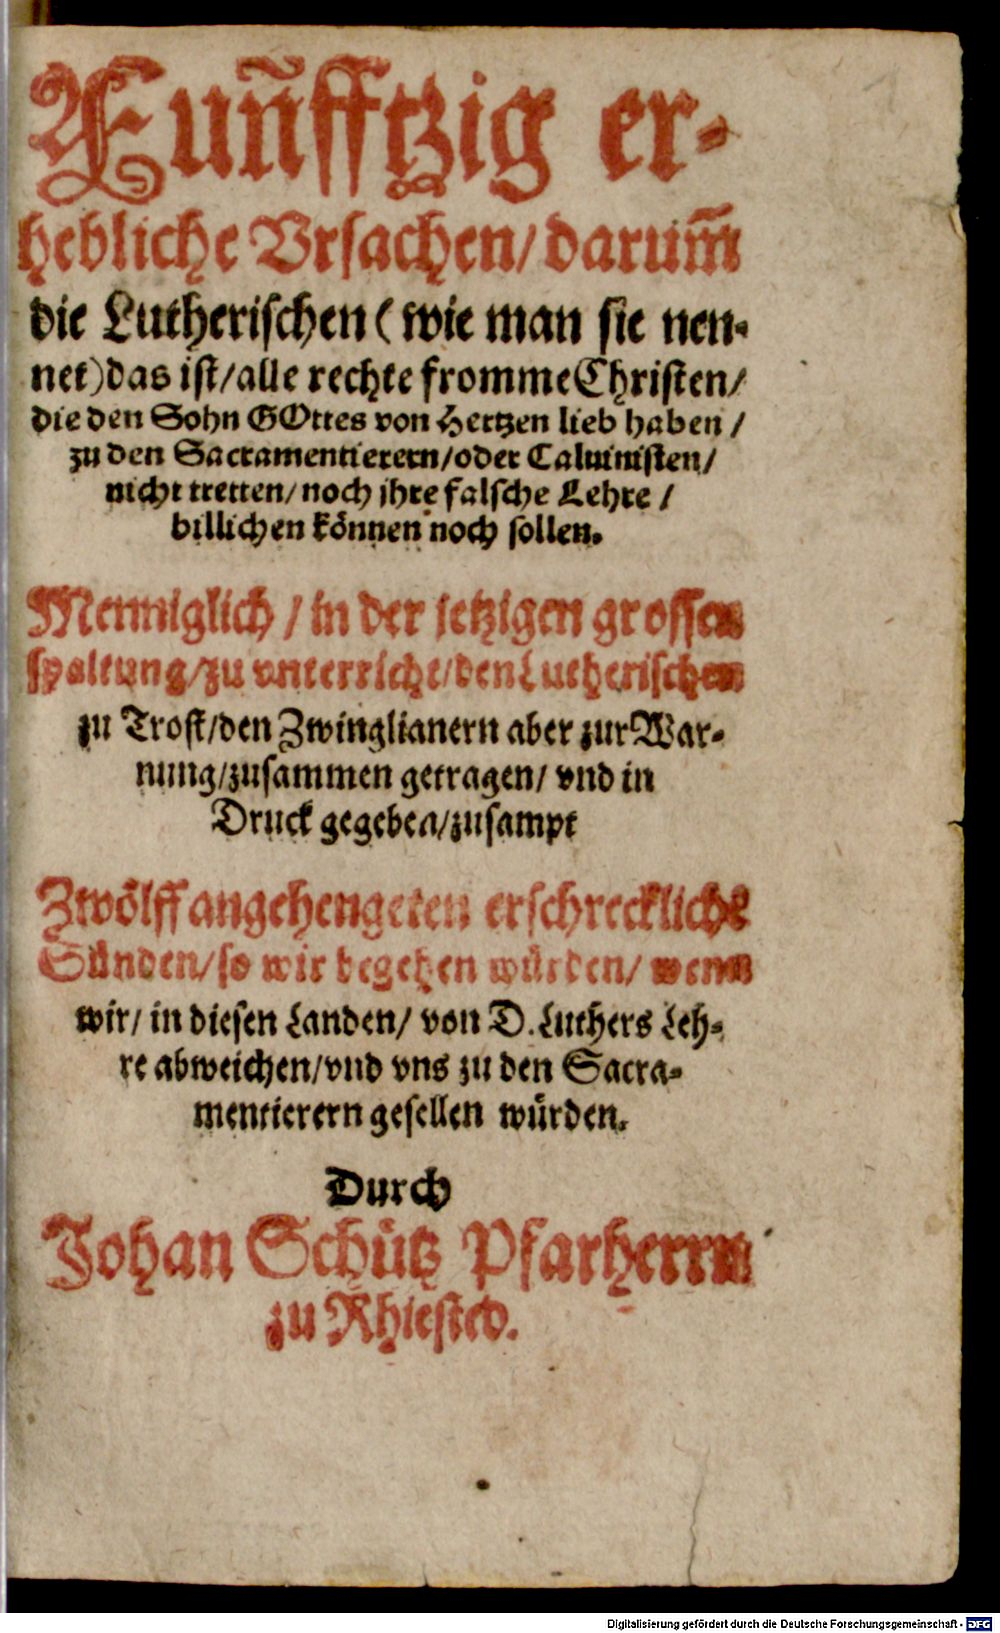 Fuñfftzig er-
hebliche Vrsachen/ darum̃
die Lutherischen (wie man sie nen-
net) das ist/ alle rechte fromme Christen/
die den Sohn GOttes von Hertzen lieb haben /
zu den Sacramentierern/ oder Caluinisten/
nicht tretten/ noch jhre falsche Lehre /
billichen können noch sollen.
Menniglich / in der jetzigen grossen
spaltung/ zu vnterricht/ den Lutherischen
zu Trost/ den Zwinglianern aber zur War-
nung/ zusammen getragen/ vnd in
Druck gegeben/ zusampt
Zwölff angehengeten erschreckliche
Sünden/ so wir begehen würden/ wenn
wir/ in diesen Landen/ von D. Luthers Leh-
re abweichen/ vnd vns zu den Sacra-
mentierern gesellen würden.
Durch
Johan Schütz Pfarherrn
zu Rhiested.
Digitalisierung gefördert durch die Deutsche Forschungsgemeinschaft - DFG